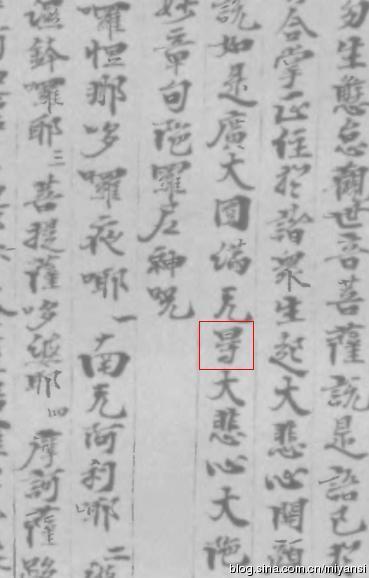 勿生懈怠觀世音菩薩說是語已於
合掌正住於諸眾生起大悲心開顏
說如是廣大圓滿无㝵大悲心大陁
妙章句陁羅尼神呪
囉怛那哆囉夜㖿一 南无阿利㖿二
鉢囉耶三 菩提薩哆婆耶四 摩訶薩
blog.sina.com.cn/miyansi